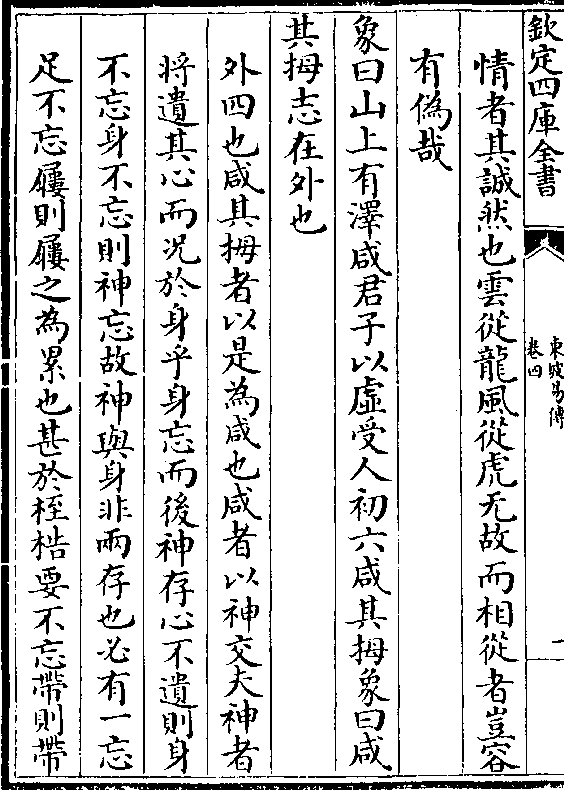 欽定四庫全書
東坡易傳
卷四
一
情者其誠然也雲從龍風從虎无故而相從者豈容
有偽哉
象曰山上有澤咸君子以虛受人初六咸其拇象曰咸
其拇志在外也
外四也咸其拇者以是為咸也咸者以神交夫神者
將遺其心而况於身乎身忘而後神存心不遺則身
不忘身不忘則神忘故神與身非兩存也必有一忘
足不忘屨則屨之為累也甚於桎梏要不忘帶則帶